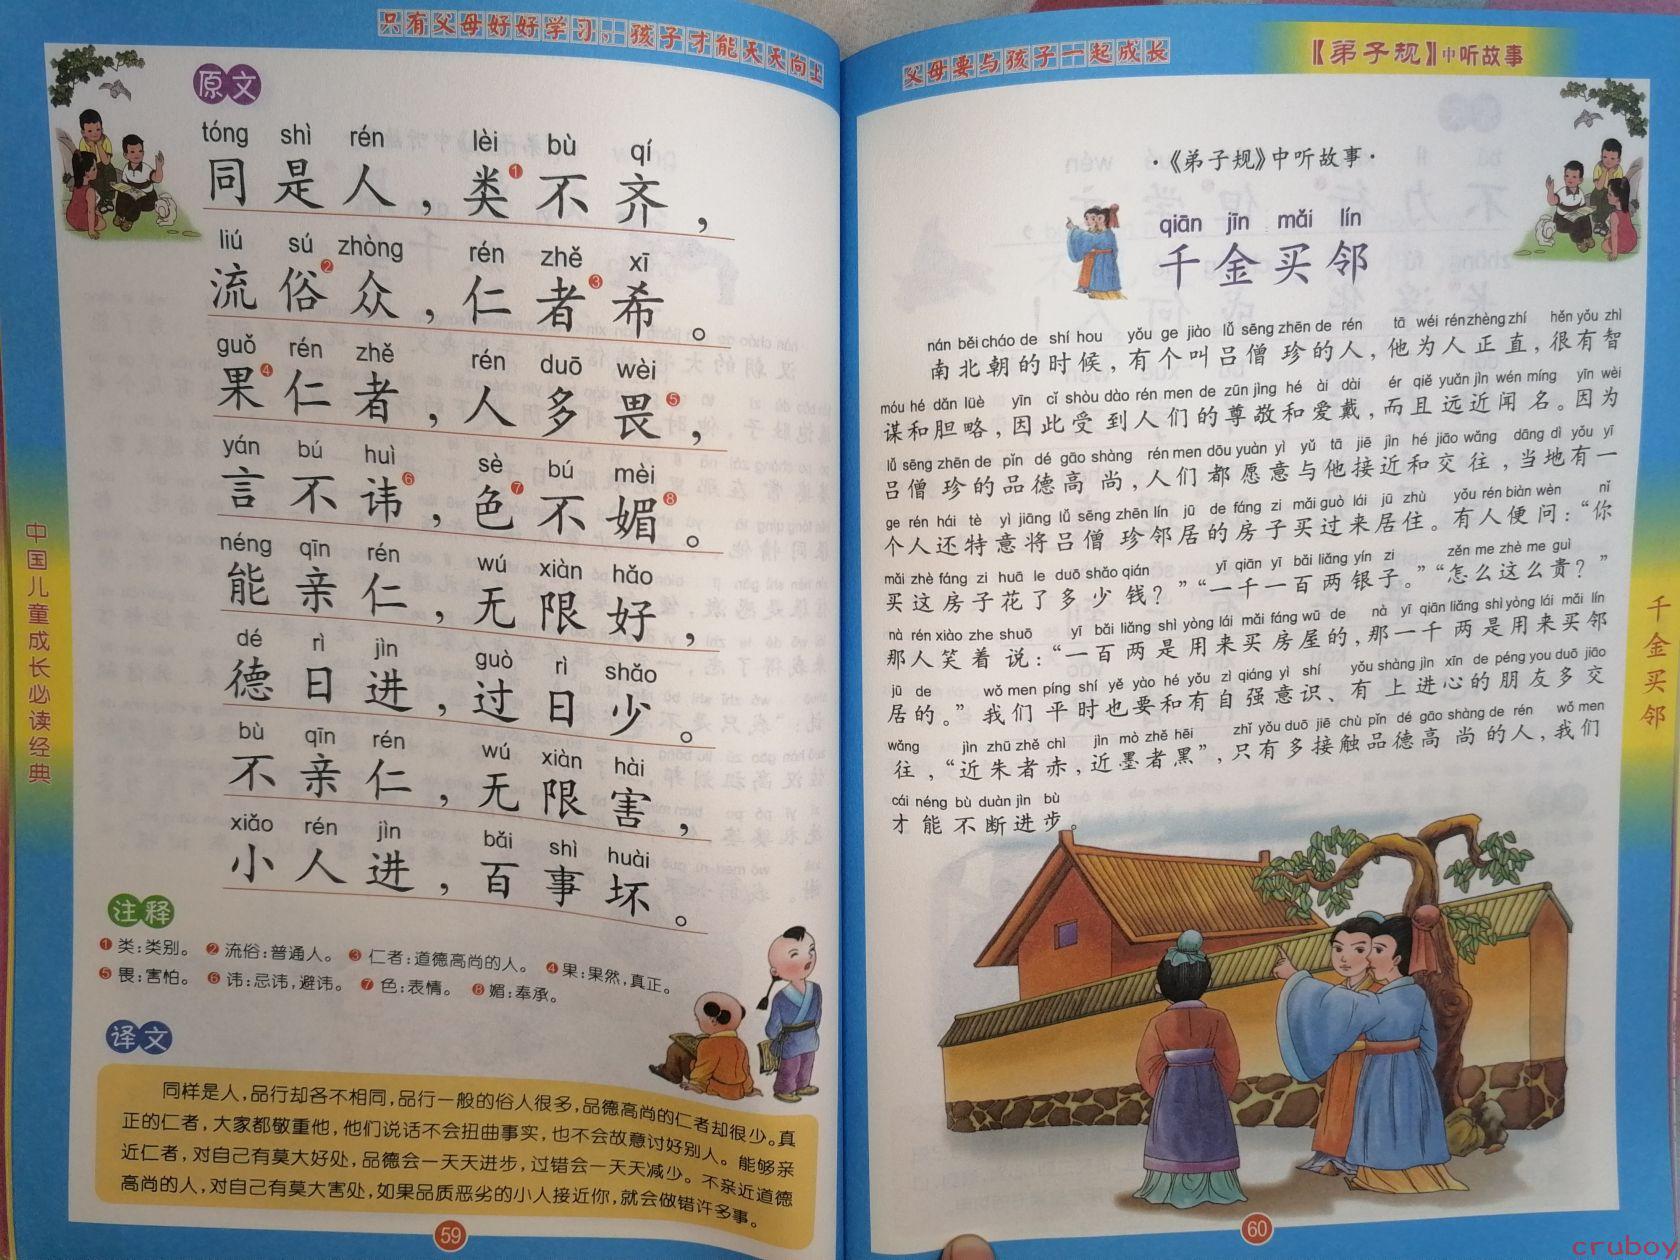 只有父母好好学习，孩子才能天天向上
原文
tóng shì rén lèi bù qí
同是人，类❶不齐，
liú sú zhòng rén zhě xī
流俗❷众，仁者❸希。
guǒ rén zhě rén duō wèi
果❹仁者，人多畏❺，
yán bú huì sè bú mèi
言不讳❻，色❼不媚❽。
néng qīn rén wú xiàn hǎo
能亲仁，无限好，
dé rì jìn guò rì shǎo
德日进，过日少。
bù qīn rén wú xiàn hài
不亲仁，无限害，
xiǎo rén jìn bǎi shì huài
小人进，百事坏。
注释
❶类：类别。 ❷流俗：普通人。 ❸仁者：道德高尚的人。 ❹果：果然，真正。
❺畏：害怕。 ❻讳：忌讳，避讳。 ❼色：表情。 ❽媚：奉承。
译文
同样是人，品行却各不相同，品行一般的俗人很多，品德高尚的仁者却很少。真
正的仁者，大家都敬重他，他们说话不会扭曲事实，也不会故意讨好别人。能够亲
近仁者，对自己有莫大好处，品德会一天天进步，过错会一天天减少。不亲近道德
高尚的人，对自己有莫大害处，如果品质恶劣的小人接近你，就会做错许多事。
59
中国儿童成长必读经典
父母要与孩子一起成长
【弟子规】中听故事
·《弟子规》中听故事·
qiān jīn mǎi lín
千金买邻
nán běi cháo de shí hou yǒu ge jiào lǚ sēng zhēn de rén tā wéi rén zhèng zhí hěn yǒu zhì
南北朝的时候，有个叫吕僧珍的人，他为人正直，很有智
móu hé dǎn lüè yīn cǐ shòu dào rén men de zūn jìng hé ài dài ér qiě yuǎn jìn wén míng yīn wèi
谋和胆略，因此受到人们的尊敬和爱戴，而且远近闻名。因为
lǚ sēng zhēn de pǐn dé gāo shàng rén men dōu yuàn yì yǔ tā jiē jìn hé jiāo wǎng dāng dì yǒu yī
吕僧珍的品德高尚，人们都愿意与他接近和交往，当地有一
ge rén hái tè yì jiāng lǚ sēng zhēn lín jū de fáng zi mǎi guò lái jū zhù yǒu rén biàn wèn nǐ
个人还特意将吕僧珍邻居的房子买过来居住。有人便问：“你
mǎi zhè fáng zi huā le duō shǎo qián yī qiān yī bǎi liǎng yín zi zěn me zhè me guì
买这房子花了多少钱？”“一千一百两银子。”“怎么这么贵？”
nà rén xiào zhe shuō yī bǎi liǎng shì yòng lái mǎi fáng wū de nà yī qiān liǎng shì yòng lái mǎi lín
那人笑着说：“一百两是用来买房屋的，那一千两是用来买邻
jū de wǒ men píng shí yě yào hé yǒu zì qiáng yì shí yǒu shàng jìn xīn de péng you duō jiāo
居的。”我们平时也要和有自强意识、有上进心的朋友多交
wǎng jìn zhū zhě chì jìn mò zhě hēi zhǐ yǒu duō jiē chù pǐn dé gāo shàng de rén wǒ men
往，“近朱者赤，近墨者黑”，只有多接触品德高尚的人，我们
cái néng bù duàn jìn bù
才能不断进步。
千金买邻
60
cruboy